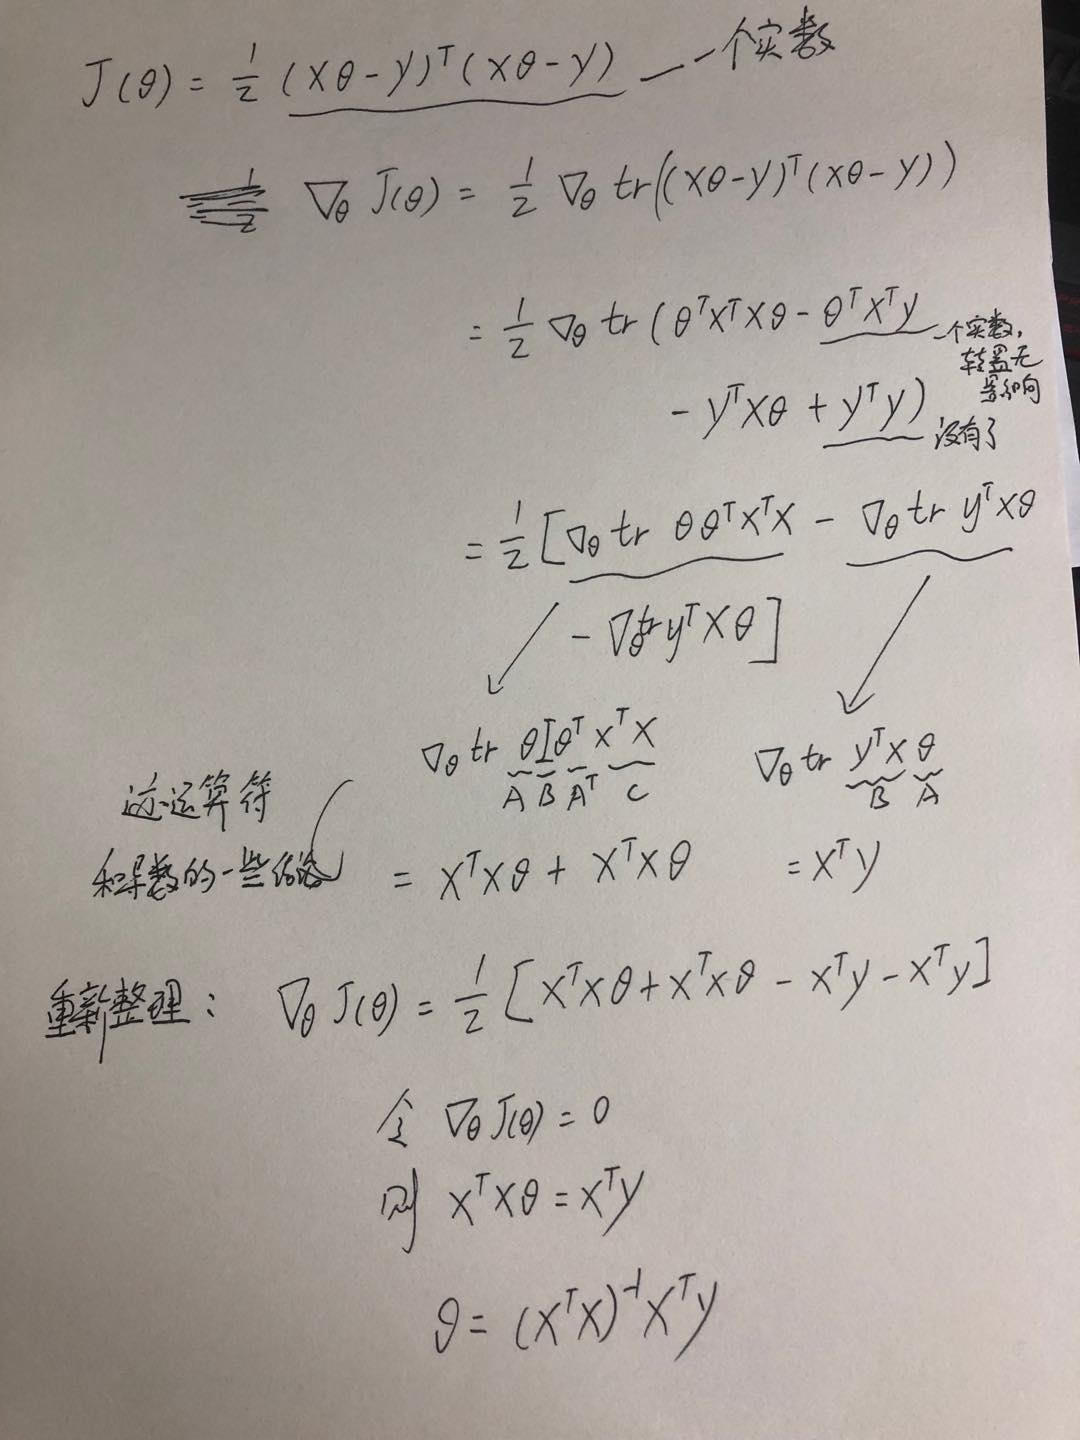 J(θ) = 1/2 (Xθ-y)ᵀ(Xθ-y) — 一个实数
∇θ J(θ) = 1/2 ∇θ tr((Xθ-y)ᵀ(Xθ-y))
= 1/2 ∇θ tr(θᵀXᵀXθ - θᵀXᵀy 一个实数,
转置无
影响
- yᵀXθ + yᵀy) 没有了
= 1/2 [∇θ tr θθᵀXᵀX - ∇θ tr yᵀXθ
- ∇θ tr yᵀXθ]
∇θ tr θIθᵀXᵀX ∇θ tr yᵀXθ
A B Aᵀ C B A
迹运算符
和导数的一些结论 = XᵀXθ + XᵀXθ = Xᵀy
重新整理: ∇θ J(θ) = 1/2 [XᵀXθ + XᵀXθ - Xᵀy - Xᵀy]
令 ∇θ J(θ) = 0
则 XᵀXθ = Xᵀy
θ = (XᵀX)⁻¹Xᵀy